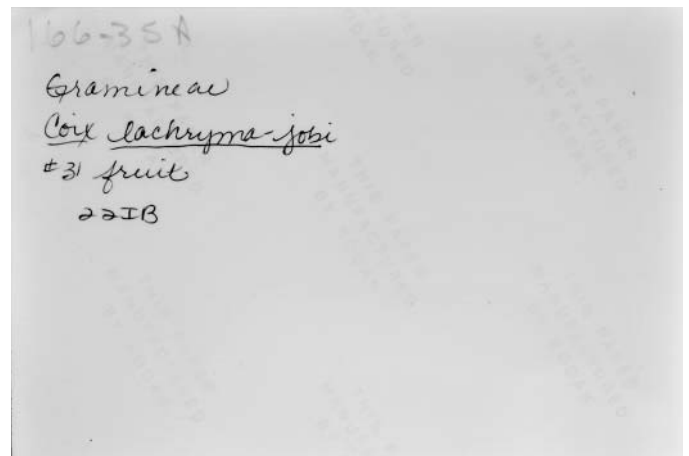 166-35A
Gramineae
Coix lachryma-jobi
#31 fruit
22IB
THIS PAPER
MANUFACTURED
BY KODAK